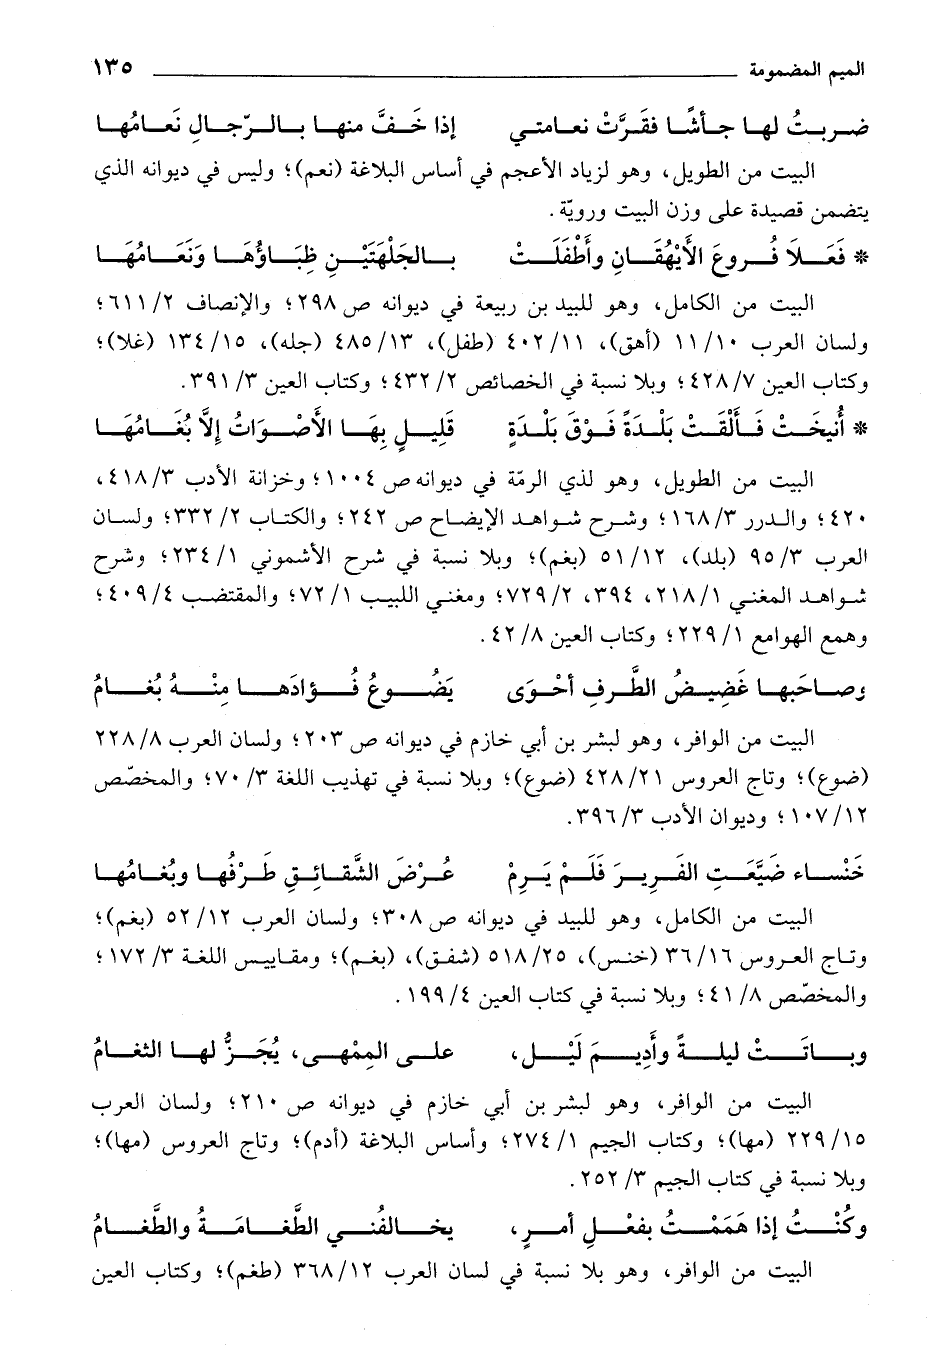 الميم المضمومة ١٣٥
ضربتُ لها جأشًا فقَرَّتْ نعامتي إذا خَفَّ منها بالرّجالِ نَعامُها
البيت من الطويل، وهو لزياد الأعجم في أساس البلاغة (نعم)؛ وليس في ديوانه الذي
يتضمن قصيدة على وزن البيت ورويّة.
* فَعَلاَ فُروعَ الأَيْهُقَانِ وأَطْفَلَتْ بالجَلْهَتَيْنِ ظِبَاؤُهَا ونَعَامُهَا
البيت من الكامل، وهو للبيد بن ربيعة في ديوانه ص ٢٩٨؛ والإنصاف ٢/ ٦١١؛
ولسان العرب ١٠/ ١١ (أهق)، ١١/ ٤٠٢ (طفل)، ١٣/ ٤٨٥ (جله)، ١٥/ ١٣٤ (غلا)؛
وكتاب العين ٧/ ٤٢٨؛ وبلا نسبة في الخصائص ٢/ ٤٣٢؛ وكتاب العين ٣/ ٣٩١.
* أُنيخَتْ فَأَلْقَتْ بَلْدَةً فَوْقَ بَلْدَةٍ قَلِيلٍ بِهَا الأَصْوَاتُ إلاَّ بُغَامُهَا
البيت من الطويل، وهو لذي الرمّة في ديوانه ص ١٠٠٤؛ وخزانة الأدب ٣/ ٤١٨،
٤٢٠؛ والدرر ٣/ ١٦٨؛ وشرح شواهد الإيضاح ص ٢٤٢؛ والكتاب ٢/ ٣٣٢؛ ولسان
العرب ٣/ ٩٥ (بلد)، ١٢/ ٥١ (بغم)؛ وبلا نسبة في شرح الأشموني ١/ ٢٣٤؛ وشرح
شواهد المغني ١/ ٢١٨، ٣٩٤، ٢/ ٧٢٩؛ ومغني اللبيب ١/ ٧٢؛ والمقتضب ٤/ ٤٠٩؛
وهمع الهوامع ١/ ٢٢٩؛ وكتاب العين ٨/ ٤٢.
وصاحَبها غَضِيضُ الطَّرفِ أحْوَى يَضُوعُ فُؤادَها مِنْهُ بُغَامُ
البيت من الوافر، وهو لبشر بن أبي خازم في ديوانه ص ٢٠٣؛ ولسان العرب ٨/ ٢٢٨
(ضوع)؛ وتاج العروس ٢١/ ٤٢٨ (ضوع)؛ وبلا نسبة في تهذيب اللغة ٣/ ٧٠؛ والمخصّص
١٢/ ١٠٧؛ وديوان الأدب ٣/ ٣٩٦.
خَنْساء ضَيَّعَتِ الفَريرَ فَلَمْ يَرِمْ عُرْضَ الشَّقائِقِ طَرْفُها وبُغامُها
البيت من الكامل، وهو للبيد في ديوانه ص ٣٠٨؛ ولسان العرب ١٢/ ٥٢ (بغم)؛
وتاج العروس ١٦/ ٣٦ (خنس)، ٢٥/ ٥١٨ (شفق)، (بغم)؛ ومقاييس اللغة ٣/ ١٧٢؛
والمخصّص ٨/ ٤١؛ وبلا نسبة في كتاب العين ٤/ ١٩٩.
وباتَتْ ليلةً وأَدِيمَ لَيْلٍ، على المِمْهى، يُجَزُّ لها الثغامُ
البيت من الوافر، وهو لبشر بن أبي خازم في ديوانه ص ٢١٠؛ ولسان العرب
١٥/ ٢٢٩ (مها)؛ وكتاب الجيم ١/ ٢٧٤؛ وأساس البلاغة (أدم)؛ وتاج العروس (مها)؛
وبلا نسبة في كتاب الجيم ٣/ ٢٥٢.
وكُنْتُ إذا هَمَمْتُ بفعْلِ أمرٍ، يخالفُني الطَّغامَةُ والطَّغامُ
البيت من الوافر، وهو بلا نسبة في لسان العرب ١٢/ ٣٦٨ (طغم)؛ وكتاب العين